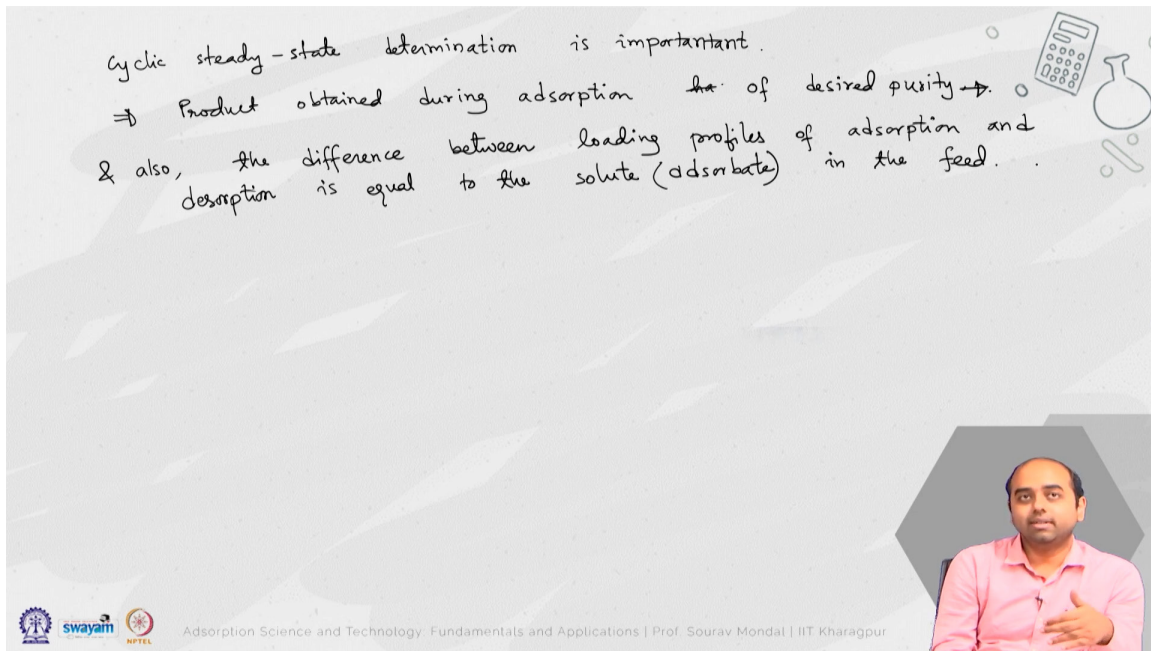 Cyclic steady-state determination is importantant.
⇒ Product obtained during adsorption of desired purity →.
& also, the difference between loading profiles of adsorption and
desorption is equal to the solute (adsorbate) in the feed.
swayam
NPTEL
Adsorption Science and Technology: Fundamentals and Applications | Prof. Sourav Mondal | IIT Kharagpur